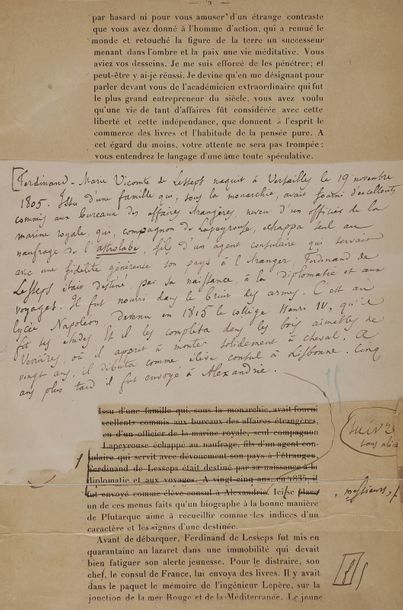 — 3 —
par hasard ni pour vous amuser d'un étrange contraste
que vous avez donné à l'homme d'action, qui a remué le
monde et retouché la figure de la terre un successeur
menant dans l'ombre et la paix une vie méditative. Vous
aviez vos desseins. Je me suis efforcé de les pénétrer; et
peut-être y ai-je réussi. Je devine qu'en me désignant pour
parler devant vous de l'académicien extraordinaire qui fut
le plus grand entrepreneur du siècle, vous avez voulu
qu'une vie de tant d'affaires fût considérée avec cette
liberté et cette indépendance, que donnent à l'esprit le
commerce des livres et l'habitude de la pensée pure. A
cet égard du moins, votre attente ne sera pas trompée :
vous entendrez le langage d'une âme toute spéculative.
[Ferdinand-Marie Vicomte de Lesseps naquit à Versailles le 19 novembre
1805. Issu d'une famille qui, sous la monarchie, avait fourni d'excellents
commis aux bureaux des affaires étrangères, neveu d'un officier de la
marine royale, qui, compagnon de Lapeyrouse, échappa seul au
naufrage de l'astrolabe, fils d'un agent consulaire qui servait
avec une fidélité généreuse son pays à l'étranger Ferdinand de
Lesseps était destiné par sa naissance à la diplomatie et aux
voyages. Il fut nourri dans le bruit des armes. C'est au
lycée Napoléon devenu en 1815 le collège Henri IV, qu'il
fit ses études et il les compléta dans les bois aimables de
Verrières, où il apprit à monter solidement à cheval. A
vingt ans, il débuta comme élève consul à Lisbonne. Cinq
ans plus tard il fut envoyé à Alexandrie.
Issu d'une famille qui, sous la monarchie, avait fourni
excellents commis aux bureaux des affaires étrangères,
en d'un officier de la marine royale, seul compagnon
Lapeyrouse échappé au naufrage, fils d'un agent con-
sulaire qui servit avec dévouement son pays à l'étranger,
Ferdinand de Lesseps était destiné par sa naissance à la
diplomatie et aux voyages. A vingt-cinq ans, en 1835, il
fut envoyé comme élève consul à Alexandrie. Ici se place
messieurs,
un de ces menus faits qu'un biographe à la bonne manière
de Plutarque aime à recueillir comme les indices d'un
caractère et les signes d'une destinée.
Avant de débarquer, Ferdinand de Lesseps fut mis en
quarantaine au lazaret dans une immobilité qui devait
bien fatiguer son alerte jeunesse. Pour le distraire, son
chef, le consul de France, lui envoya des livres. Il y avait
dans le paquet le mémoire de l'ingénieur Lepère, sur la
jonction de la mer Rouge et de la Méditerranée. Le jeune